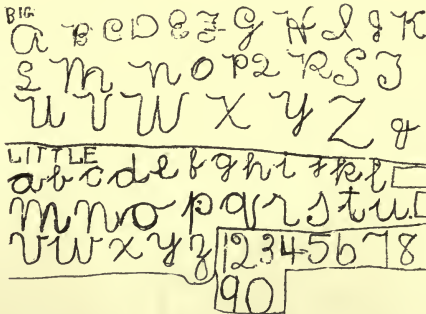 BIG
a B C D E F G H I J K
L M N O P Q R S T
U V W X Y Z &
LITTLE
a b c d e f g h i j k l
m n o p q r s t u
v w x y z 1 2 3 4 5 6 7 8
9 0